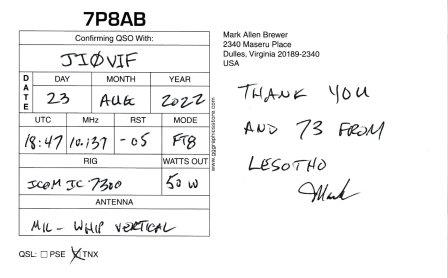 7P8AB
Confirming QSO With:
JI0VIF
DATE
DAY MONTH YEAR
23 AUG 2022
UTC MHz RST MODE
18:47 10.137 -05 FT8
RIG WATTS OUT
ICOM IC 7300 50 W
ANTENNA
MIL - WHIP VERTICAL
QSL: □ PSE ☒ TNX
www.qqgraphicsstore.com
Mark Allen Brewer
2340 Maseru Place
Dulles, Virginia 20189-2340
USA
THANK YOU
AND 73 FROM
LESOTHO
Mark